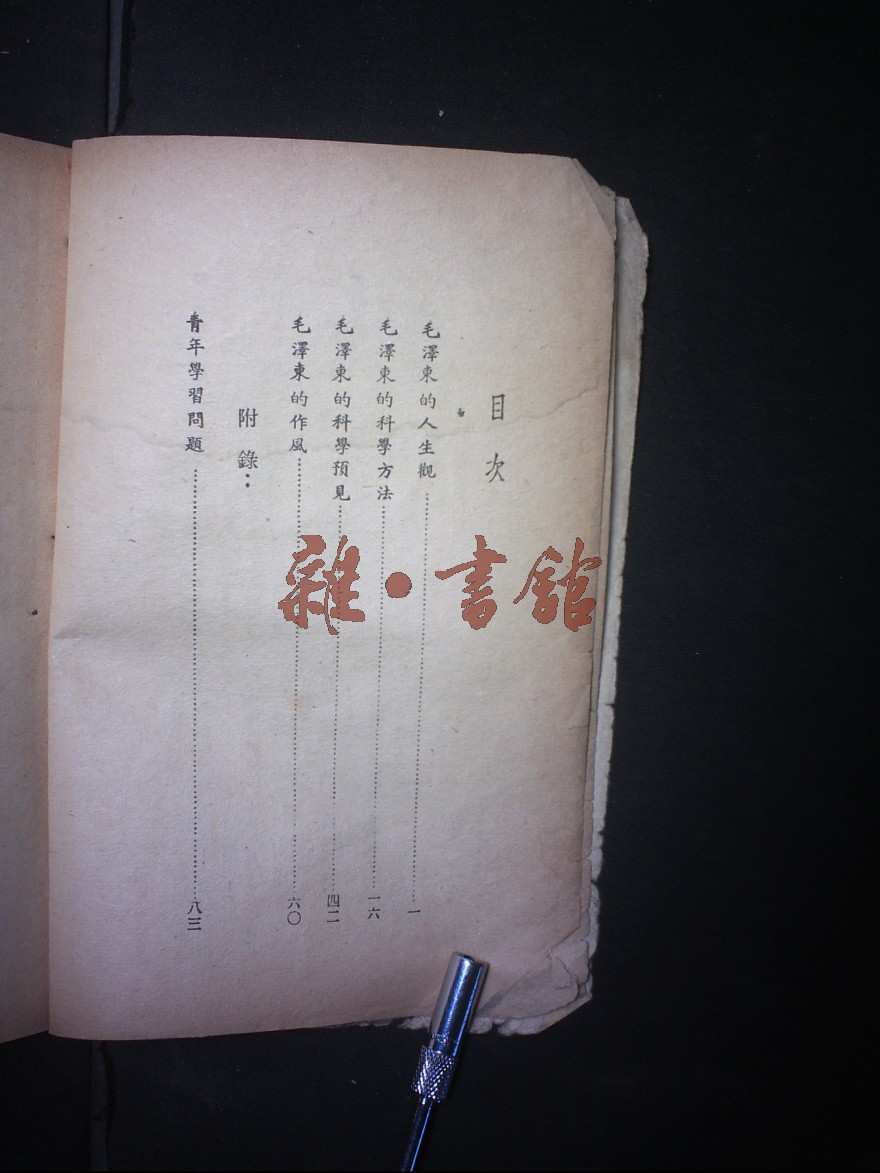 目次
毛澤東的人生觀……一
毛澤東的科學方法……一六
毛澤東的科學預見……四二
毛澤東的作風……六〇
附錄：
青年學習問題……八三
雜·書館